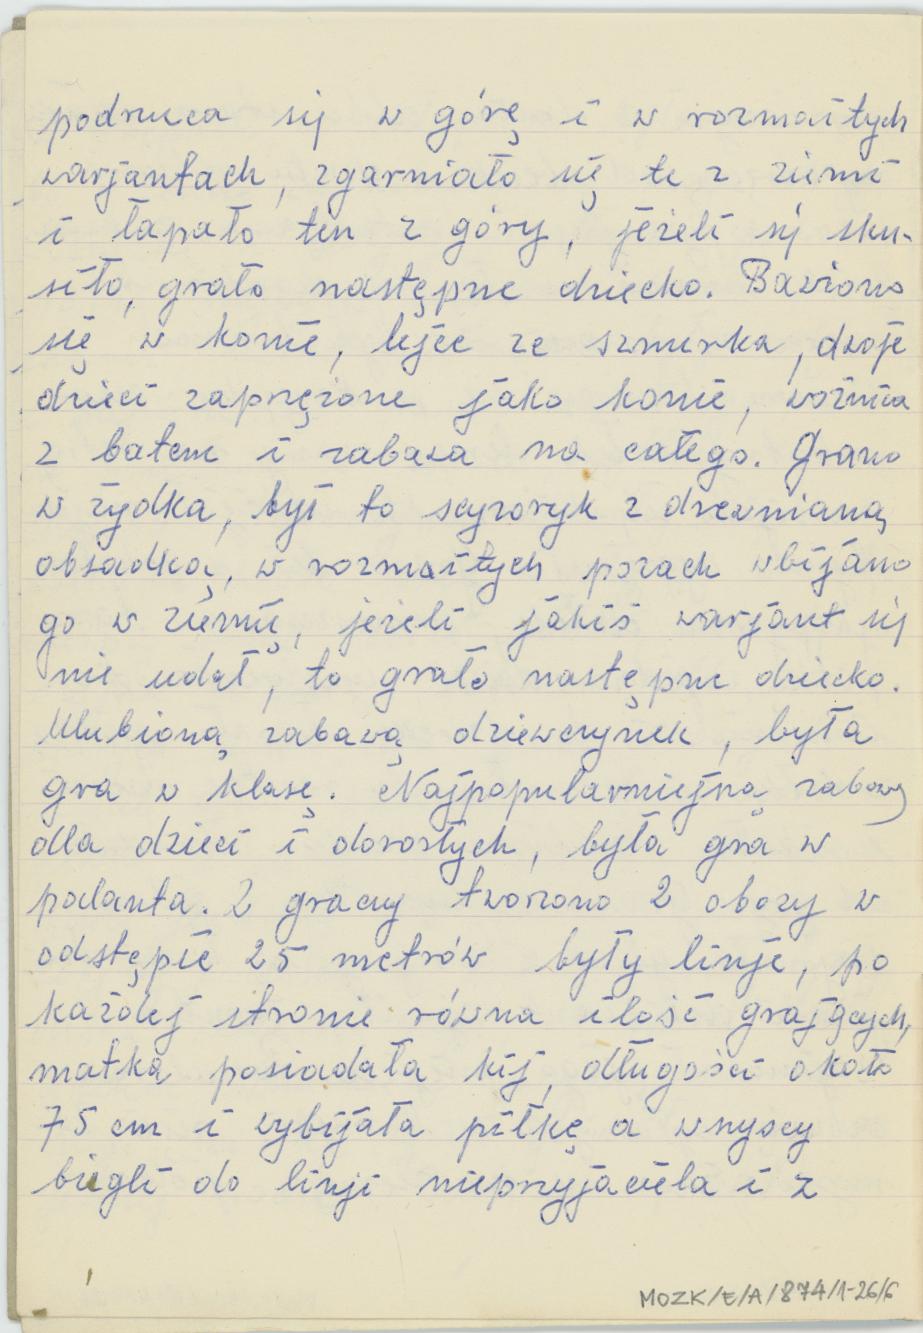 podrzuca się w górę i w rozmaitych
warjantach, zgarniało się te z ziemi
i łapało ten z góry, jeżeli się sku-
siło, grało następne dziecko. Bawiono
się w konie, lejce ze sznurka, dwoje
dzieci zaprzężone jako konie, woźnica
z batem i zabawa na całego. Grano
w żydka, był to scyzoryk z drewnianą
obsadką, w rozmaitych pozach wbijano
go w ziemię, jeżeli jakiś warjant się
nie udał, to grało następne dziecko.
Ulubioną zabawą dziewczynek, była
gra w klasę. Najpopularniejszą zabawą
dla dzieci i dorosłych, była gra w
palanta. Z graczy tworzono 2 obozy w
odstępie 25 metrów były linje, po
każdej stronie równa ilość grających,
matka posiadała kij, długości około
75 cm i wybijała piłkę a wszyscy
biegli do linji nieprzyjaciela i z
MOZK/E/A/874/1-26/6